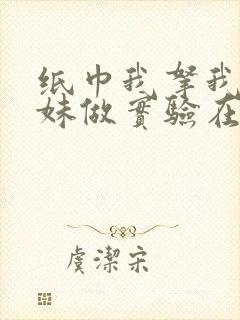 纸巾我拏我
妹做實驗在
虞潔宋